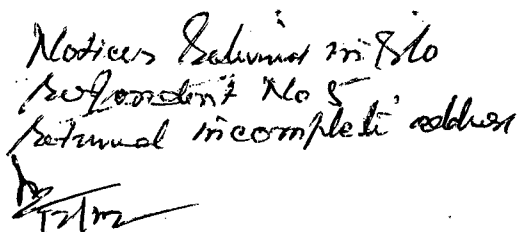 Notices Returned in r/o
Respondent No 5
Returned incomplete address